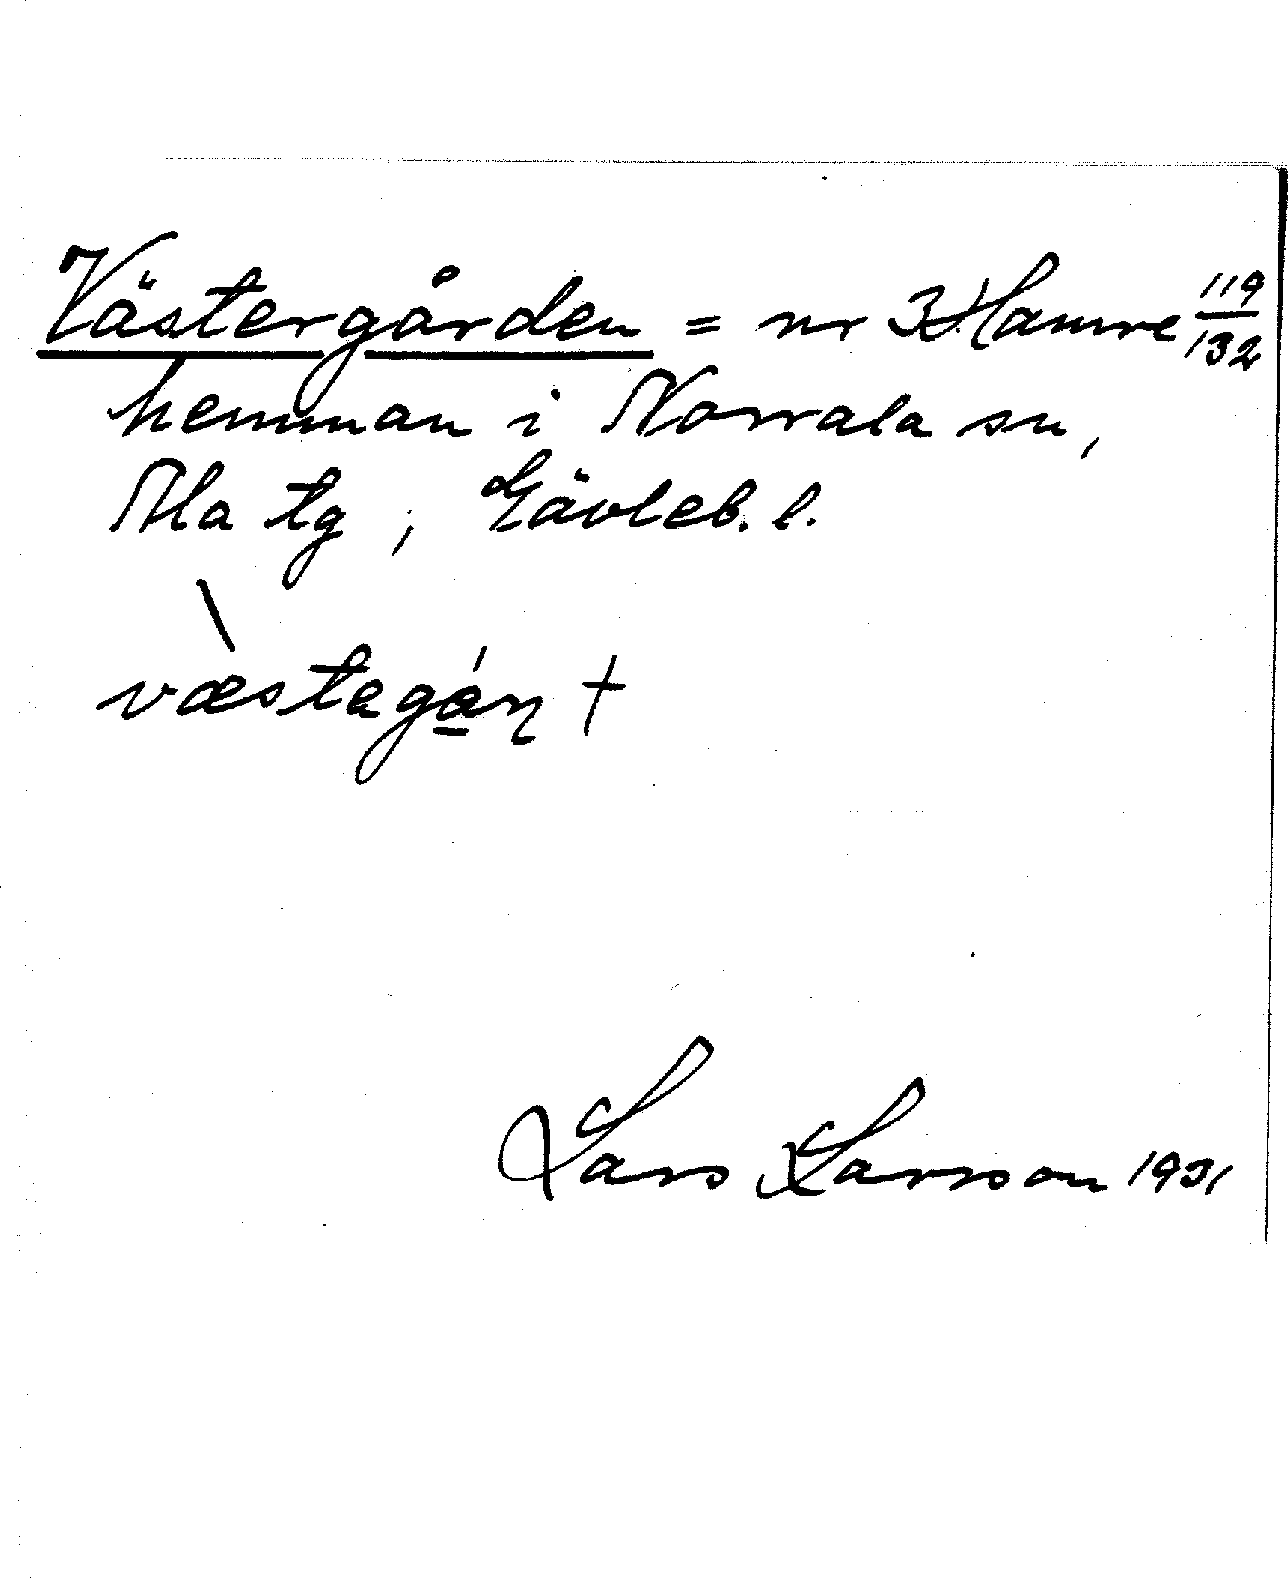 Västergården = nr 3 Hamre 119/132
hemman i Norrala sn,
Ala tg, Gävleb. l.
væstagáɳ +
Lars Larsson 1931